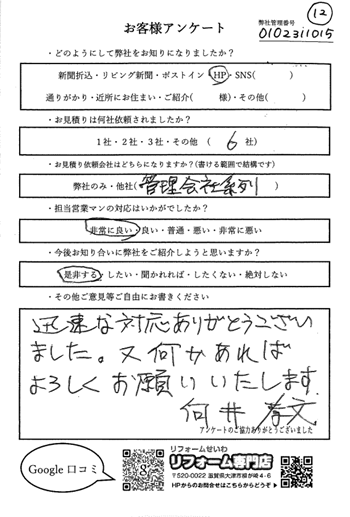 ⑫
弊社管理番号
0102311015
お客様アンケート
・どのようにして弊社をお知りになりましたか？
新聞折込・リビング新聞・ポストイン・HP・SNS(　　　)
通りがかり・近所にお住まい・ご紹介(　　　様)・その他(　　　)
・お見積りは何社依頼されましたか？
1社・2社・3社・その他　(　6　社)
・お見積り依頼会社はどちらになりますか？(書ける範囲で結構です)
弊社のみ・他社(管理会社系列)
・担当営業マンの対応はいかがでしたか？
非常に良い・良い・普通・悪い・非常に悪い
・今後お知り合いに弊社をご紹介しようと思いますか？
是非する・したい・聞かれれば・したくない・絶対しない
・その他ご意見等ご自由にお書きください
迅速な対応ありがとうござい
ました。又何かあれば
よろしくお願いいたします
アンケートのご協力ありがとうございました
Google 口コミ
リフォームせいわ
リフォーム専門店
〒520-0022 滋賀県大津市柳が崎4-6
HPからのお問合せはこちらからどうぞ▶